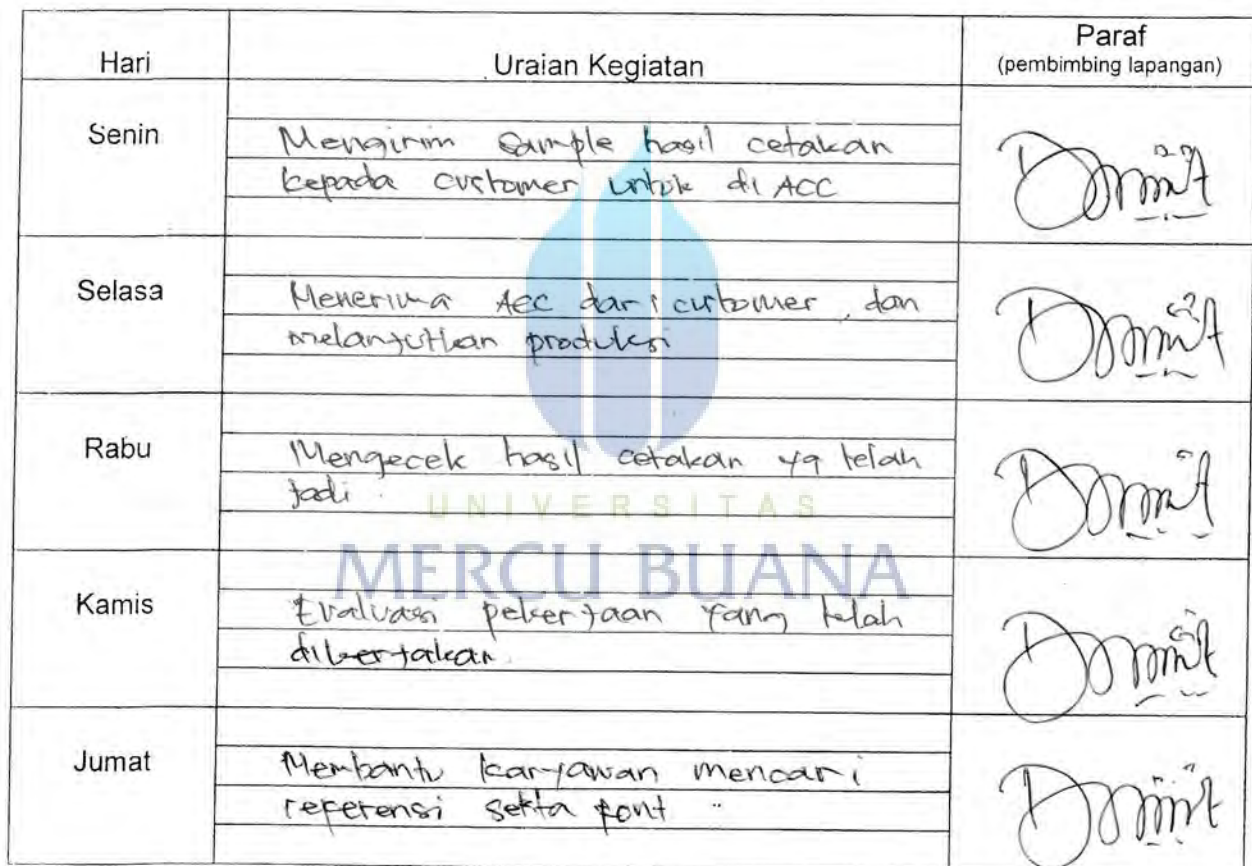 Hari Uraian Kegiatan Paraf
(pembimbing lapangan)
Senin
Mengirim Sample hasil cetakan
kepada customer untuk di ACC
Selasa
Menerima Acc dari customer, dan
melanjutkan produksi
Rabu
Mengecek hasil cetakan yg telah
jadi.
UNIVERSITAS
MERCU BUANA
Kamis
Evaluasi pekerjaan yang telah
dikerjakan.
Jumat
Membantu karyawan mencari
referensi serta font